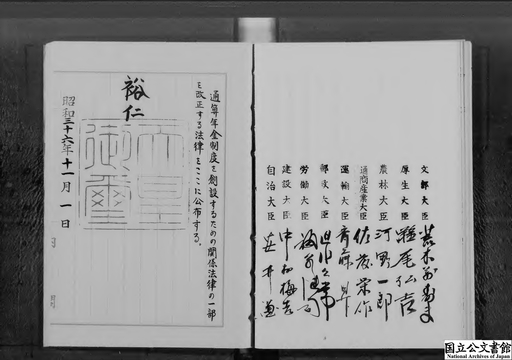 文部大臣 荒木萬壽夫
厚生大臣 灘尾弘吉
農林大臣 河野一郎
通商産業大臣 佐藤栄作
運輸大臣 斎藤昇
郵政大臣
労働大臣 福永健司
建設大臣 中村梅吉
自治大臣 安井謙
通算年金制度を創設するための関係法律の一部
を改正する法律をここに公布する。
裕仁
天皇御璽
昭和三十六年十一月一日
国立公文書館
National Archives of Japan